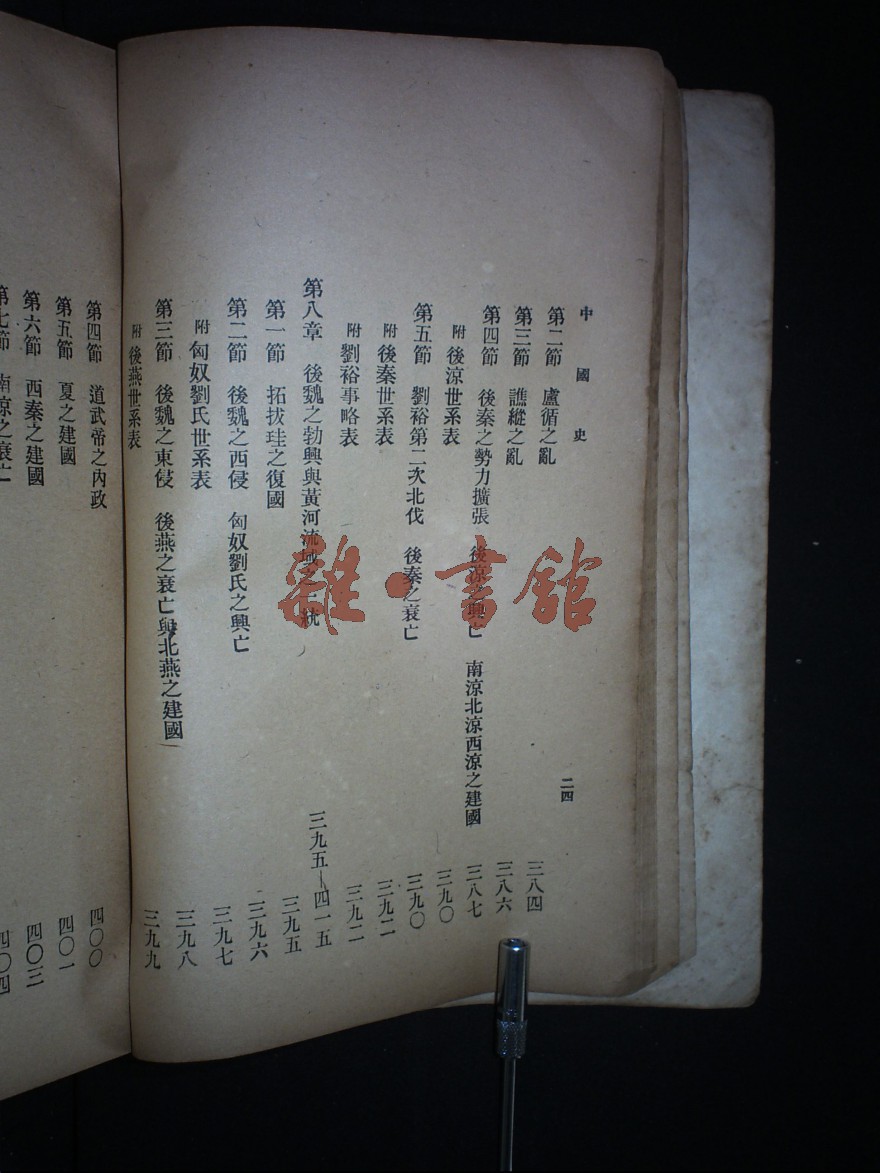 中國史 二四
第二節 盧循之亂 三八四
第三節 譙縱之亂 三八六
第四節 後秦之勢力擴張 後涼之興亡 南涼北涼西涼之建國 三八七
附 後涼世系表 三九〇
第五節 劉裕第二次北伐 後秦之衰亡 三九〇
附 後秦世系表 三九二
附 劉裕事略表 三九二
第八章 後魏之勃興與黃河流域之一統 三九五—四一五
第一節 拓拔珪之復國 三九五
第二節 後魏之西侵 匈奴劉氏之興亡 三九六
附 匈奴劉氏世系表 三九七
第三節 後魏之東侵 後燕之衰亡與北燕之建國 三九八
附 後燕世系表 三九九
第四節 道武帝之內政 四〇〇
第五節 夏之建國 四〇一
第六節 西秦之建國 四〇三
第七節 南涼之衰亡 四〇四
雜·書館